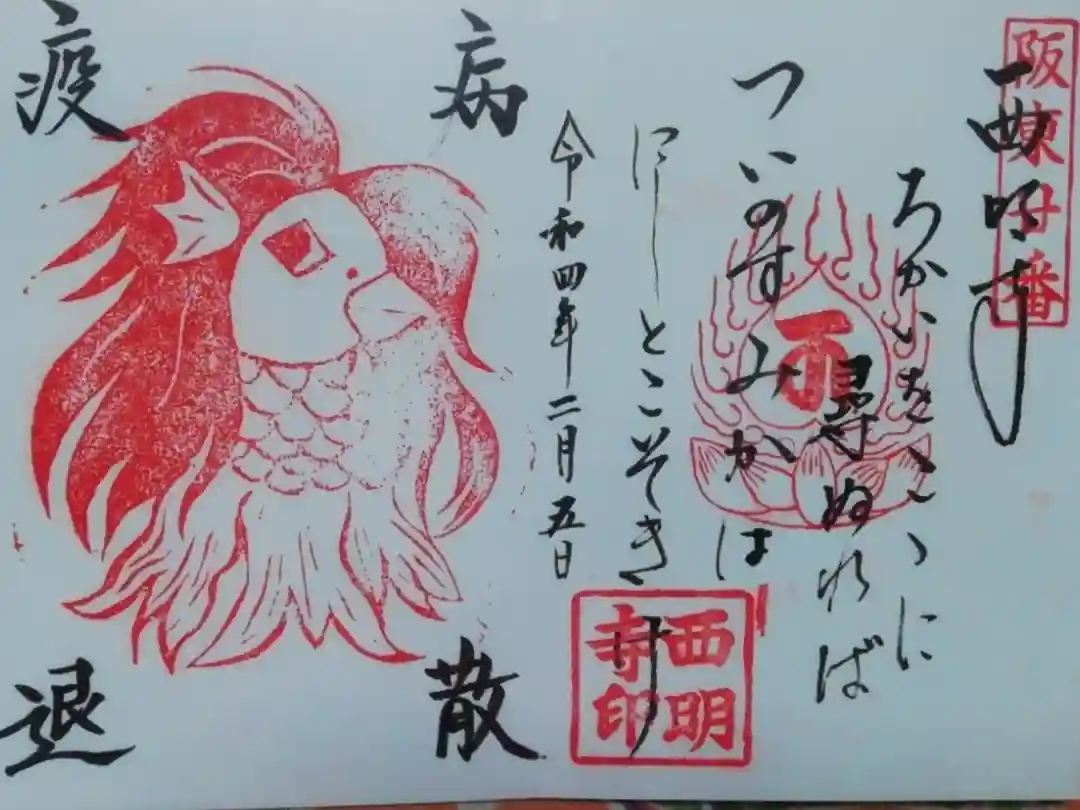 阪東廿番
西明寺
ちかいをこゝに
尋ぬれば
西
ついのすみかは
にしとこそきけ
西明寺印
令和四年二月五日
病散
疫退